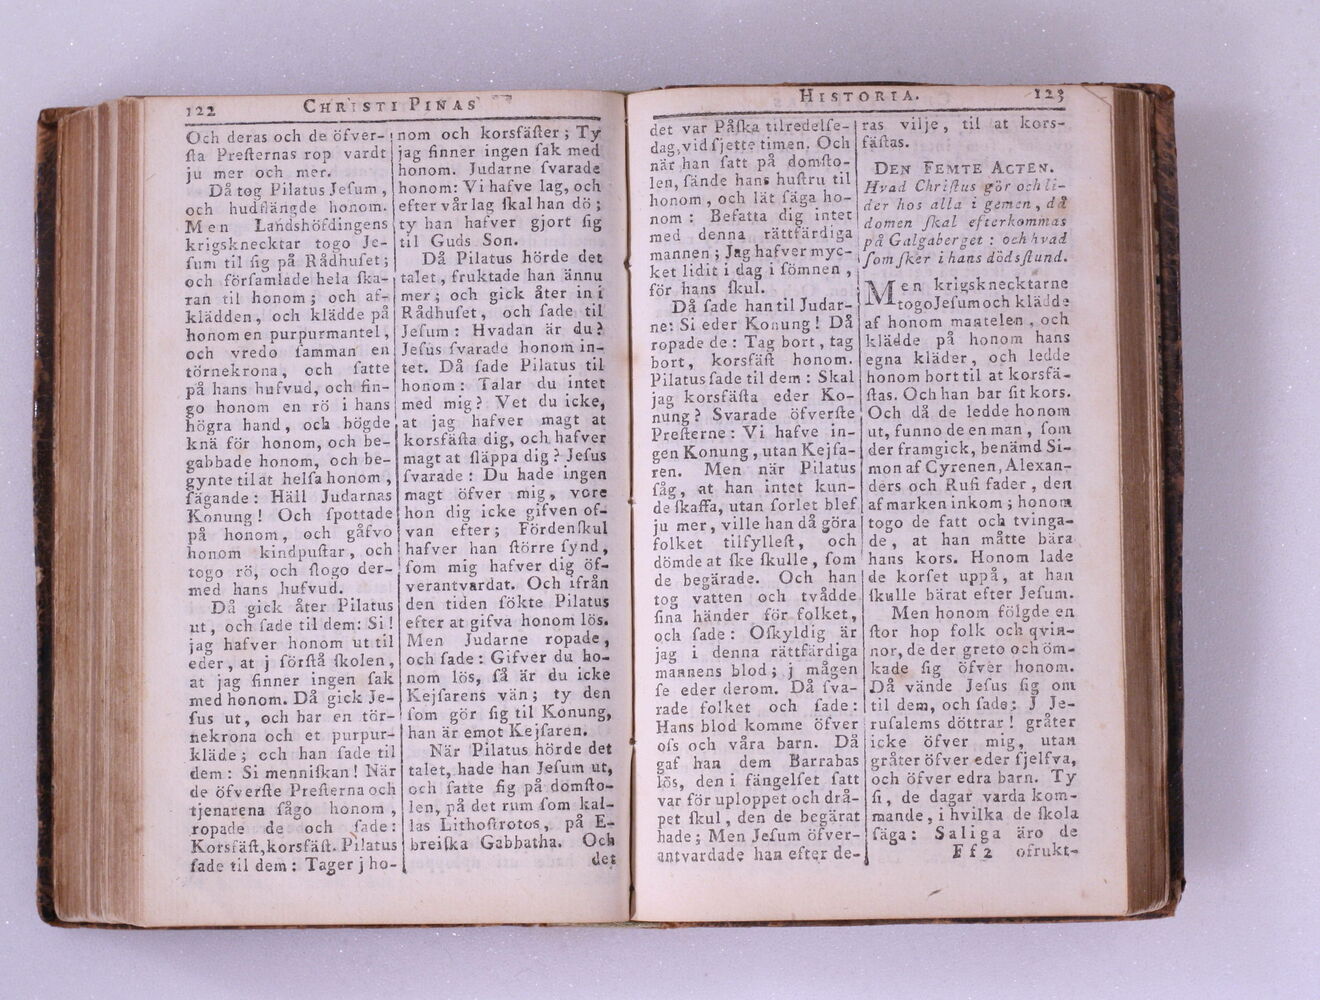 122
CHRISTI PINAS
Och deras och de öfver-
ſta Preſternas rop vardt
ju mer och mer.
Då tog Pilatus Jeſum,
och hudſlängde honom.
Men Landshöfdingens
krigsknecktar togo Je-
ſum til ſig på Rådhuſet;
och förſamlade hela ſka-
ran til honom; och af-
klädden, och klädde på
honom en purpurmantel,
och vredo ſamman en
törnekrona, och ſatte
på hans hufvud, och fin-
go honom en rö i hans
högra hand, och bögde
knä för honom, och be-
gabbade honom, och be-
gynte til at helſa honom,
ſägande: Häll Judarnas
Konung! Och ſpottade
på honom, och gåfvo
honom kindpuſtar, och
togo rö, och ſlogo der-
med hans hufvud.
Då gick åter Pilatus
ut, och ſade til dem: Si!
jag hafver honom ut til
eder, at j förſtå ſkolen,
at jag finner ingen ſak
med honom. Då gick Je-
ſus ut, och bar en tör-
nekrona och et purpur-
kläde; och han ſade til
dem: Si menniſkan! När
de öfverſte Preſterna och
tjenarena ſågo honom,
ropade de och ſade:
Korsfäſt, korsfäſt. Pilatus
ſade til dem: Tager j ho-
nom och korsfäſter; Ty
jag finner ingen ſak med
honom. Judarne ſvarade
honom: Vi hafve lag, och
efter vår lag ſkal han dö;
ty han hafver gjort ſig
til Guds Son.
Då Pilatus hörde det
talet, fruktade han ännu
mer; och gick åter in i
Rådhuſet, och ſade til
Jeſum: Hvadan är du?
Jeſus ſvarade honom in-
tet. Då ſade Pilatus til
honom: Talar du intet
med mig? Vet du icke,
at jag hafver magt at
korsfäſta dig, och hafver
magt at ſläppa dig? Jeſus
ſvarade: Du hade ingen
magt öfver mig, vore
hon dig icke gifven of-
van efter; Fördenſkul
hafver han ſtörre ſynd,
ſom mig hafver dig öf-
verantvardat. Och ifrån
den tiden ſökte Pilatus
efter at gifva honom lös.
Men Judarne ropade,
och ſade: Gifver du ho-
nom lös, ſå är du icke
Kejſarens vän; ty den
ſom gör ſig til Konung,
han är emot Kejſaren.
När Pilatus hörde det
talet, hade han Jeſum ut,
och ſatte ſig på domſto-
len, på det rum ſom kal-
las Lithoſtrotos, på E-
breiſka Gabbatha. Och
det
HISTORIA.
123
det var Påſka tilredelſe-
dag, vid ſjette timen. Och
när han ſatt på domſto-
len, ſände hans huſtru til
honom, och lät ſäga ho-
nom: Befatta dig intet
med denna rättfärdiga
mannen; Jag hafver myc-
ket lidit i dag i ſömnen,
för hans ſkul.
Då ſade han til Judar-
ne: Si eder Konung! Då
ropade de: Tag bort, tag
bort, korsfäſt honom.
Pilatus ſade til dem: Skal
jag korsfäſta eder Ko-
nung? Svarade öfverſte
Preſterne: Vi hafve in-
gen Konung, utan Kejſa-
ren. Men när Pilatus
ſåg, at han intet kun-
de ſkaffa, utan ſorlet blef
ju mer, ville han då göra
folket tilfylleſt, och
dömde at ſke ſkulle, ſom
de begärade. Och han
tog vatten och tvådde
ſina händer för folket,
och ſade: Oſkyldig är
jag i denna rättfärdiga
mannens blod; j mågen
ſe eder derom. Då ſva-
rade folket och ſade:
Hans blod komme öfver
oſs och våra barn. Då
gaf han dem Barrabas
lös, den i fängelſet ſatt
var för uploppet och drå-
pet ſkul, den de begärat
hade; Men Jeſum öfver-
antvardade han efter de-
ras vilje, til at kors-
fäſtas.
DEN FEMTE ACTEN.
Hvad Chriſtus gör och li-
der hos alla i gemen, då
domen ſkal efterkommas
på Galgaberget: och hvad
ſom ſker i hans dödsſtund.
Men krigsknecktarne
togo Jeſum och klädde
af honom mantelen, och
klädde på honom hans
egna kläder, och ledde
honom bort til at korsfä-
ſtas. Och han bar ſit kors.
Och då de ledde honom
ut, funno de en man, ſom
der framgick, benämd Si-
mon af Cyrenen, Alexan-
ders och Rufi fader, den
af marken inkom; honom
togo de fatt och tvinga-
de, at han måtte bära
hans kors. Honom lade
de korſet uppå, at han
ſkulle bärat efter Jeſum.
Men honom fölgde en
ſtor hop folk och qvin-
nor, de der greto och öm-
kade ſig öfver honom.
Då vände Jeſus ſig om
til dem, och ſade: J Je-
ruſalems döttrar! gråter
icke öfver mig, utan
gråter öfver eder ſjelfva,
och öfver edra barn. Ty
ſi, de dagar varda kom-
mande, i hvilka de ſkola
ſäga: Saliga äro de
Ff 2 ofrukt-